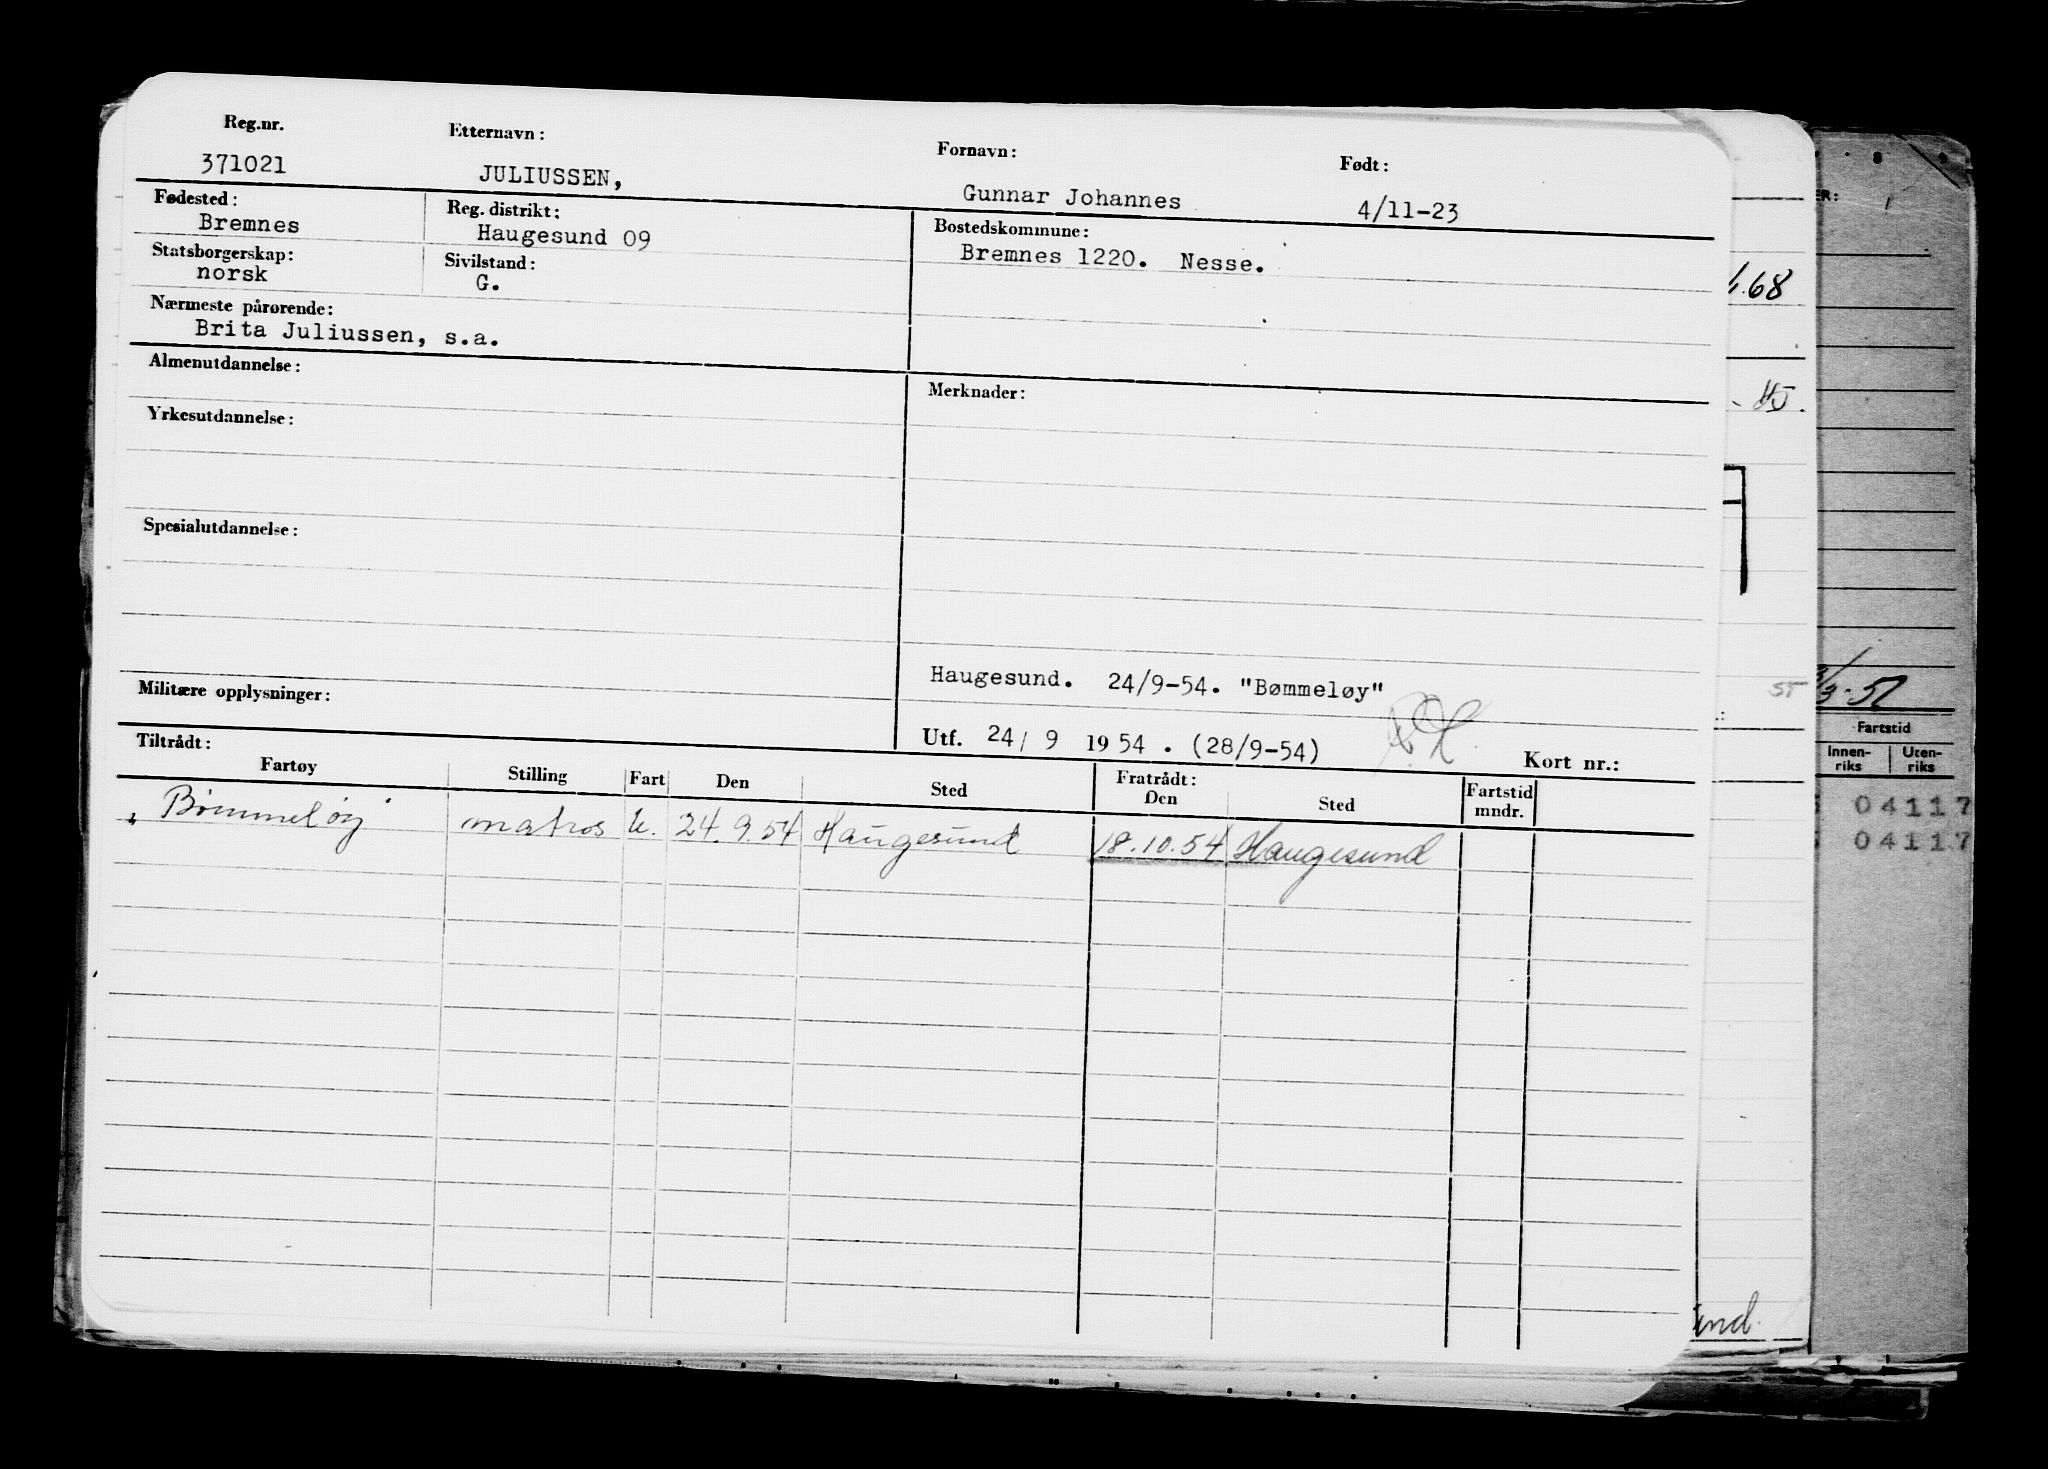 Reg.nr. Etternavn: Fornavn: Født:
371021 JULIUSSEN, Gunnar Johannes 4/11-23
Fødested: Reg. distrikt: Bostedskommune:
Bremnes Haugesund 09 Bremnes 1220. Nesse.
Statsborgerskap: Sivilstand:
norsk G.
Nærmeste pårørende:
Brita Juliussen, s.a.
Almenutdannelse: Merknader:
Yrkesutdannelse:
Spesialutdannelse:
Haugesund. 24/9-54. "Bømmeløy"
Militære opplysninger:
Utf. 24/ 9 1954. (28/9-54) Kort nr.:
Tiltrådt: Fratrådt: Fartstid
Fartøy Stilling Fart Den Sted Den Sted mndr.
"Bømmeløy" matros U. 24.9.54 Haugesund 18.10.54 Haugesund
ER:
.68
3-52
Fartstid
Innen- Uten-
riks riks
04117
04117
und.